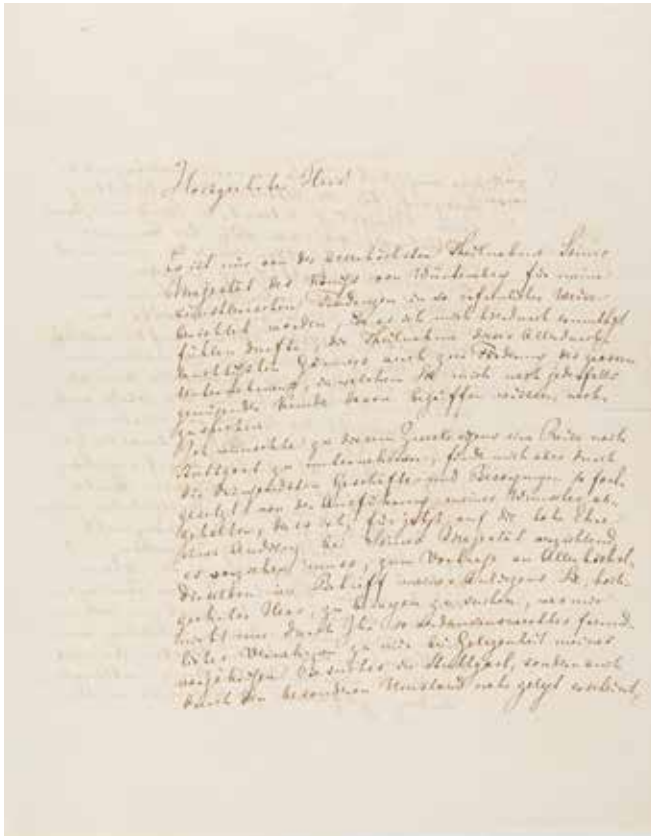 Hochgeehrter Herr!
Es ist mir von der allerhöchsten Theilnahme Seiner
Majestät des Königs von Würtemberg für meine
künstlerischen Tendenzen in so erfreulicher Weise
berichtet worden, dass ich mich dadurch ermuthigt
fühlen durfte, die Theilnahme dieses Allerdurch-
lauchtigsten Gönners auch zur Förderung des grossen
Unternehmens, in welchem Sie mich nach jedenfalls
genügender Kunde davon begriffen wissen, nach-
zusuchen.
Ich wünschte zu diesem Zwecke eine Reise nach
Stuttgart zu unternehmen, finde mich aber durch
die dringendsten Geschäfte und Besorgungen so fort-
gesetzt von der Ausführung meines Wunsches ab-
gehalten, dass ich, für jetzt, auf die hohe Ehre
einer Audienz bei Seiner Majestät
es vorziehen muss, zum Vortrage an Allerhöchst-
dieselben im Betreff meines Anliegens Sie, hoch-
geehrter Herr, zu ersuchen, was mir
nicht nur durch Ihr so freund-
liches zu mir bei Gelegenheit meines
vorjährigen Besuches in Stuttgart, sondern auch
durch den besonderen Umstand nahe gelegt erscheint,